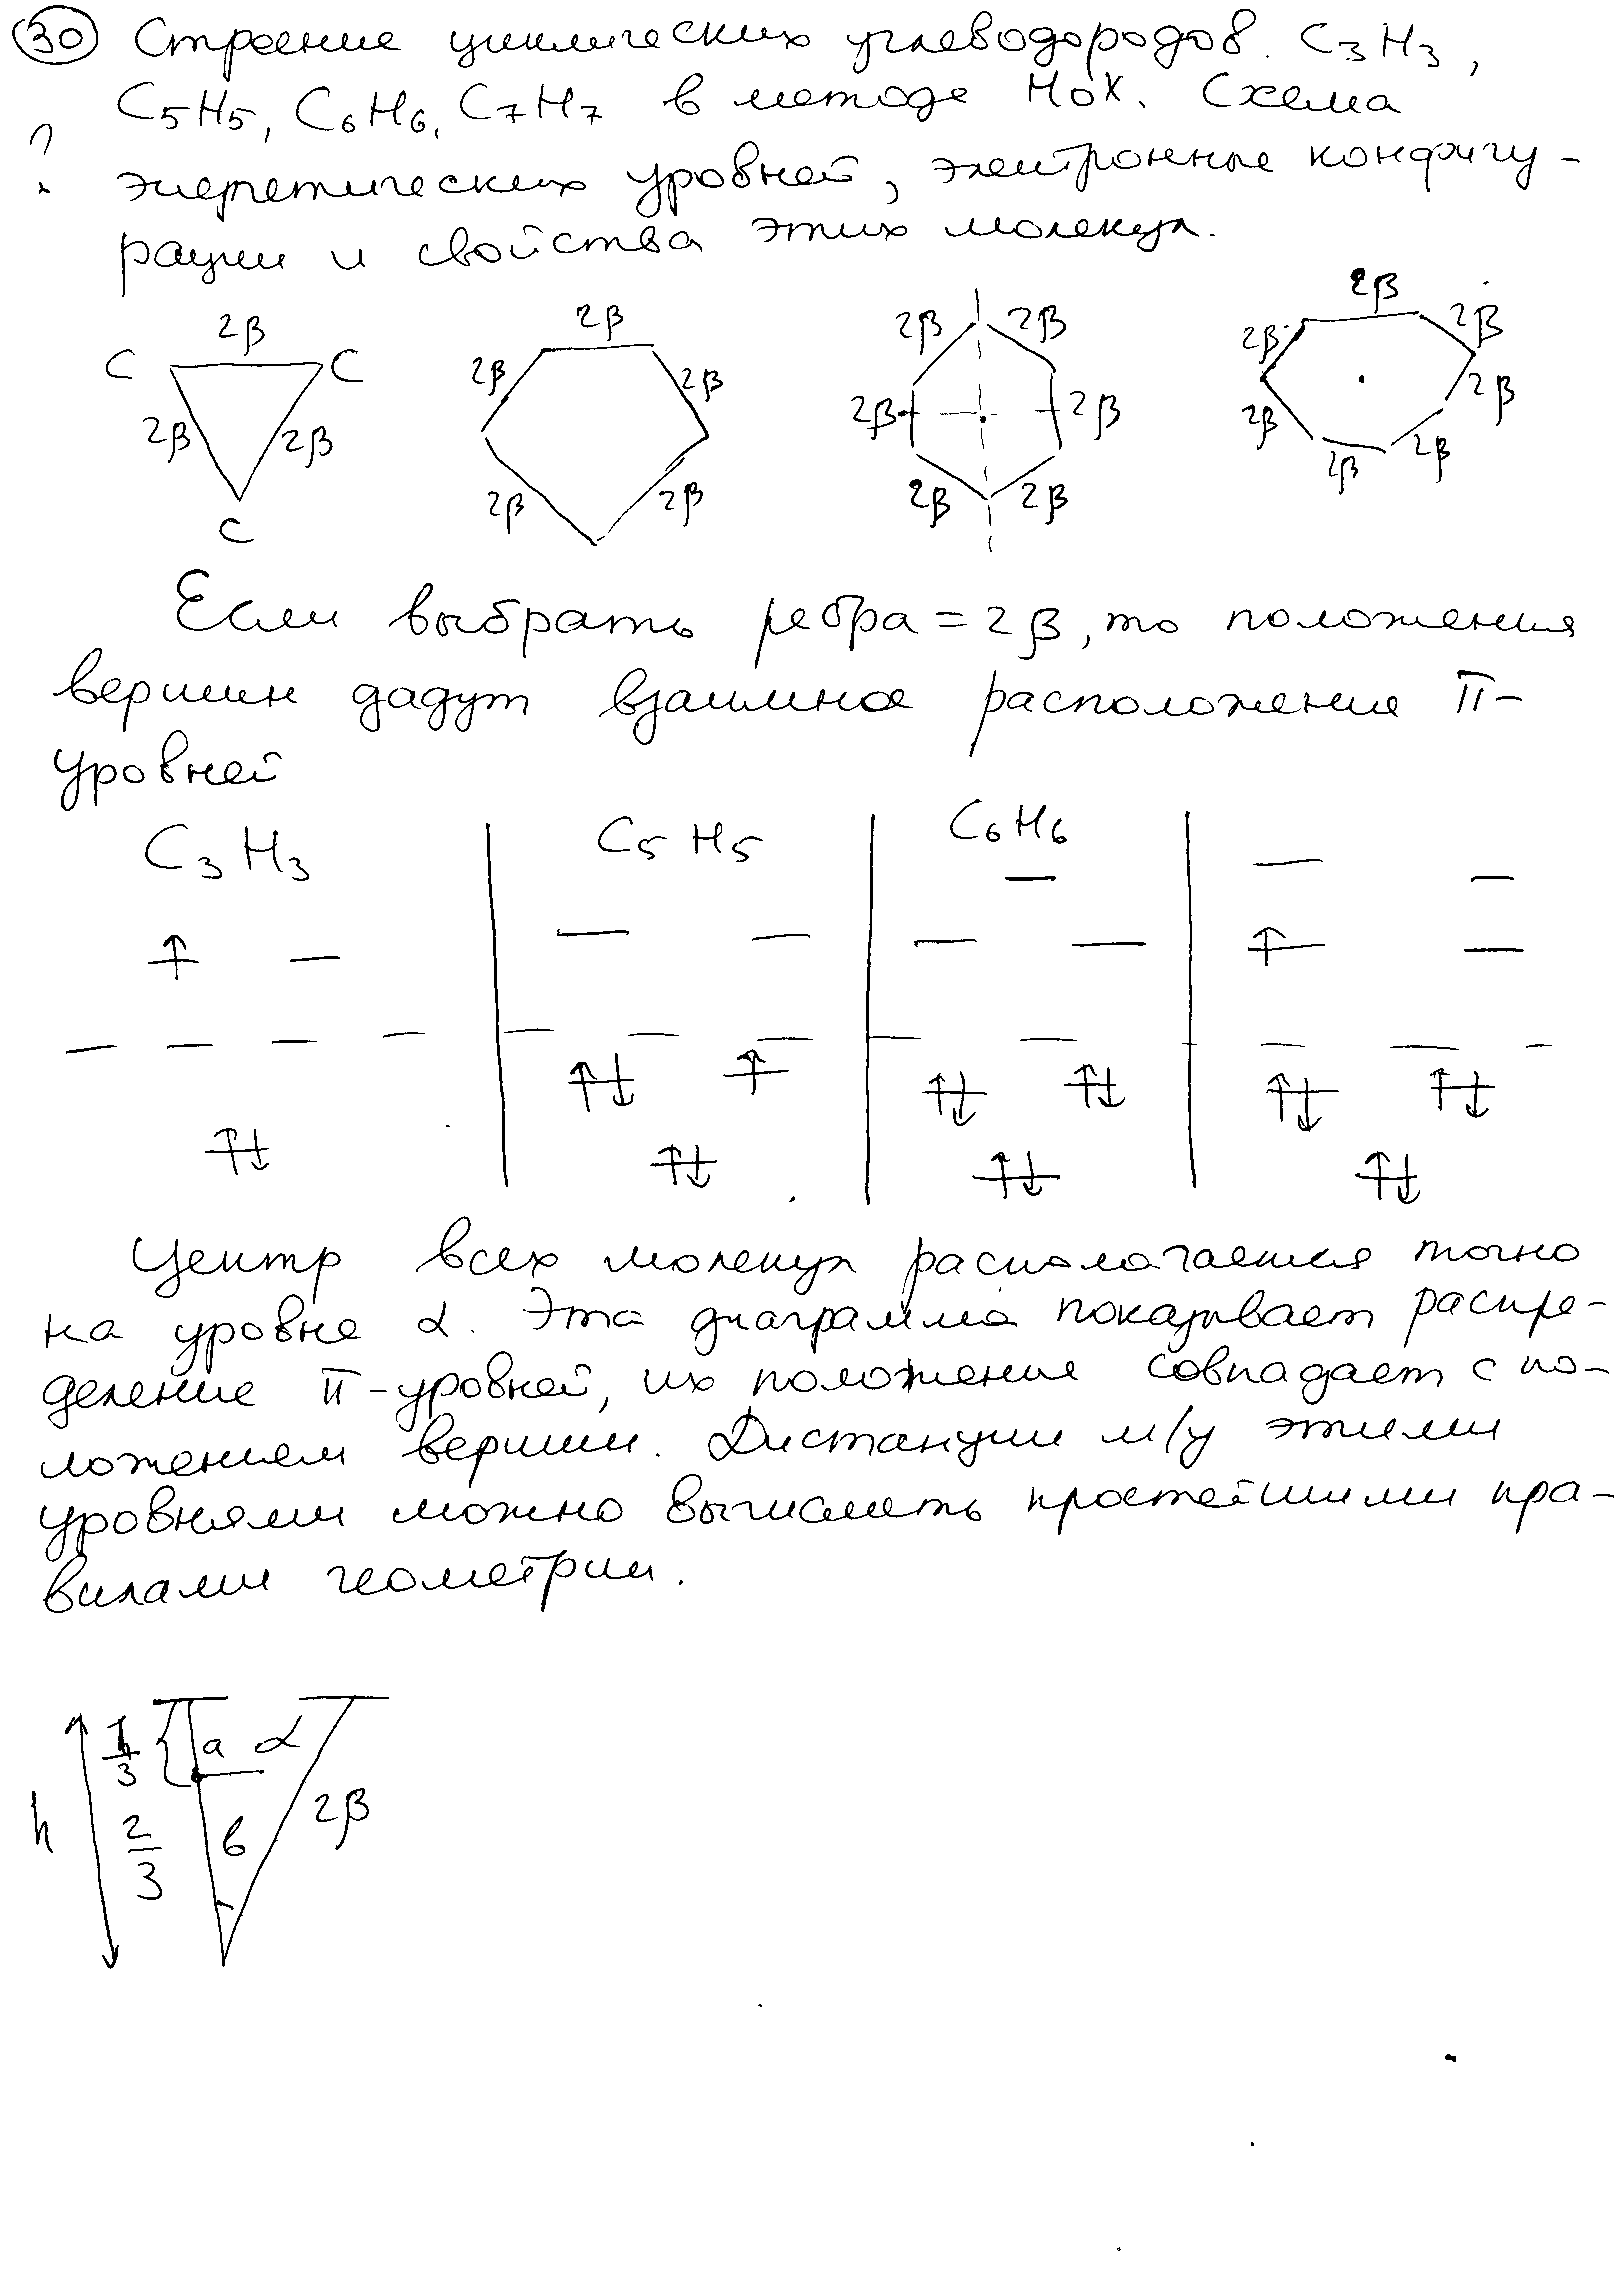 30 Строение циклических углеводородов. C3H3,
C5H5, C6H6, C7H7 в методе МОХ. Схема
?
энергетических уровней, электронные конфигу-
рации и свойства этих молекул.
2β 2β 2β 2β 2β 2β
C C 2β 2β 2β
2β 2β 2β 2β 2β 2β
2β 2β 2β 2β 2β 2β
C
Если выбрать ребра = 2β, то положения
вершин дадут взаимное расположение π-
уровней
C3H3 C5H5 C6H6
Центр всех молекул располагается точно
на уровне α. Эта диаграмма показывает распре-
деление π-уровней, их положение совпадает с по-
ложением вершин. Дистанции м/у этими
уровнями можно вычислить простейшими пра-
вилами геометрии.
1/3 a α
h 2/3 в 2β